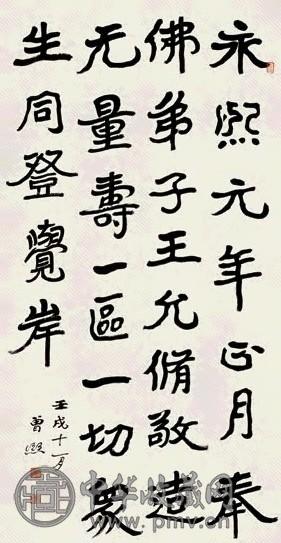 永熙元年正月奉
佛弟子王允脩敬造
无量壽一區一切眾
生同登覺岸
壬戌十一月
曾熙
中华收藏网
www.pmv.cn